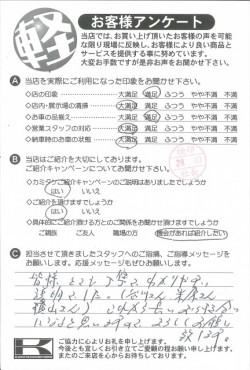 軽
お客様アンケート
当店では、お買い上げ頂いたお客様の声を可能
な限り現場に反映し、お客様により良い商品と
サービスを提供する事に努めています。
大変お手数ですが是非お声をお聞かせ下さい。
A 当店を実際にご利用になった印象をお聞かせ下さい。
◇店の印象 大満足 満足 ふつう やや不満 不満
◇店内・展示場の清掃 大満足 満足 ふつう やや不満 不満
◇お車の品揃え 大満足 満足 ふつう やや不満 不満
◇営業スタッフの対応 大満足 満足 ふつう やや不満 不満
◇納車時のお車の状態 大満足 満足 ふつう やや不満 不満
B 当店はご紹介を大切にしております。
ご紹介キャンペーンについてお聞かせ下さい。
◇カミタケご紹介キャンペーンのご説明はありましたでしょうか
はい いいえ
◇ご紹介を頂けますでしょうか
はい いいえ
◇具体的にご紹介頂ける方とのご関係をお聞かせ下さい
ご親族 ご友人 職場の方 機会があれば紹介したい
C 担当させて頂きましたスタッフへのご指摘、ご指導メッセージを
お願いします。応援メッセージもぜひお願いします。
皆様 とても丁寧で
説明でした。
と思います。よろしくお願い
致します。
K
ご協力に心よりお礼を申し上げます。
今後とも宜しくお引き立てご愛顧の程お願い申し上げます。
またのご来店を心からお待ちしております。